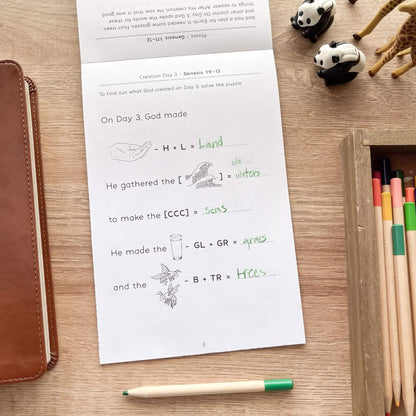 Plants - Genesis 1:11-12
God had a plan for Earth. It needed some grasses, fruit
plants! On Day God spoke the words for these
things to appear. After His creation He saw that it was good.
Creation Day 3 - Genesis 1:9-13
To find out what God created on Day 3, solve the puzzle
On Day 3, God made
- H + L = Land
wa
He gathered the [ ] = waters
to make the [CCC] = Seas
He made the - GL + GR = grass
and the - B + TR = trees